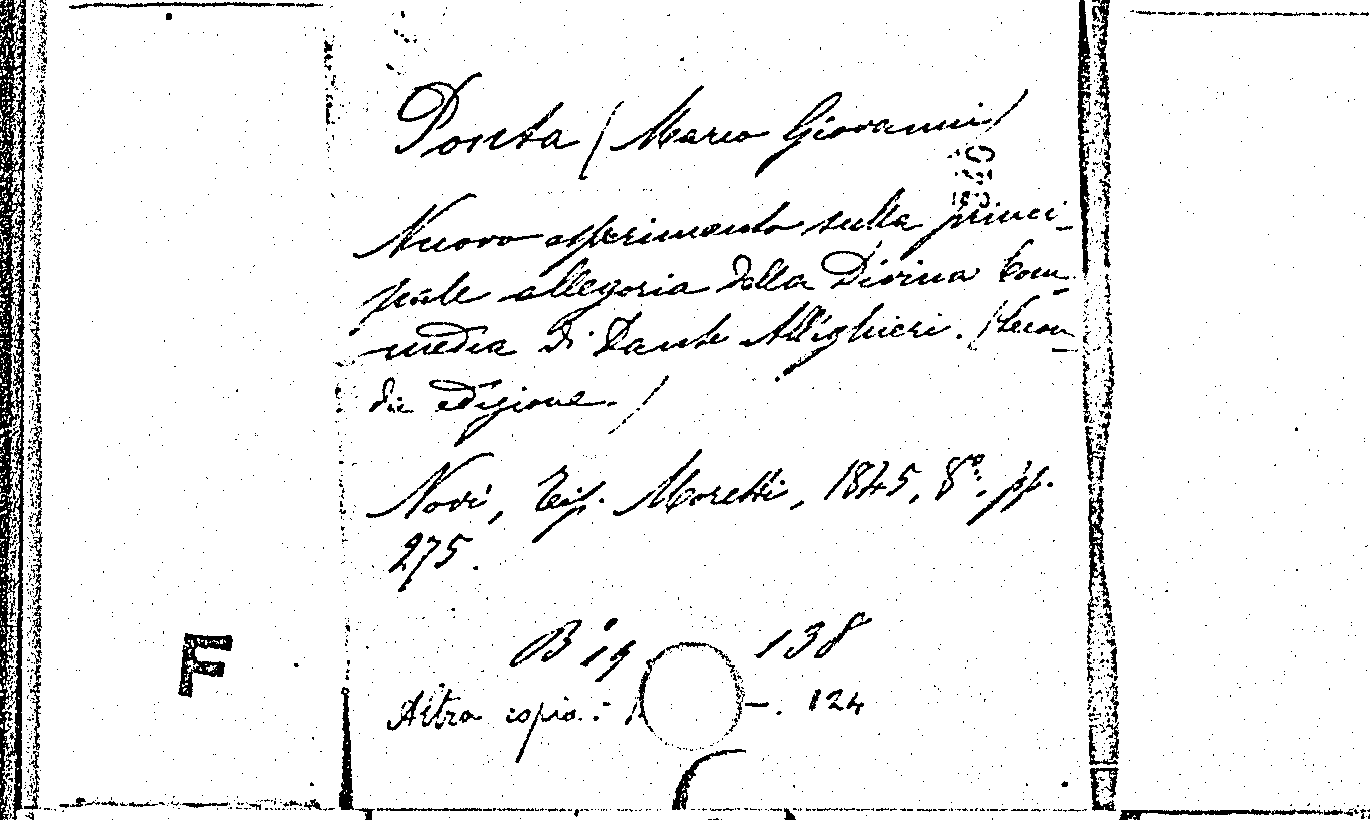 Ponta (Marco Giovanni)
Nuovo esperimento sulla princi-
pale allegoria della Divina Com-
media di Dante Allighieri. (Secon-
da edizione.)
Novi, Tip. Moretti, 1845, 8°, pp.
275.
B ig 138
Altra copia: - 124
F